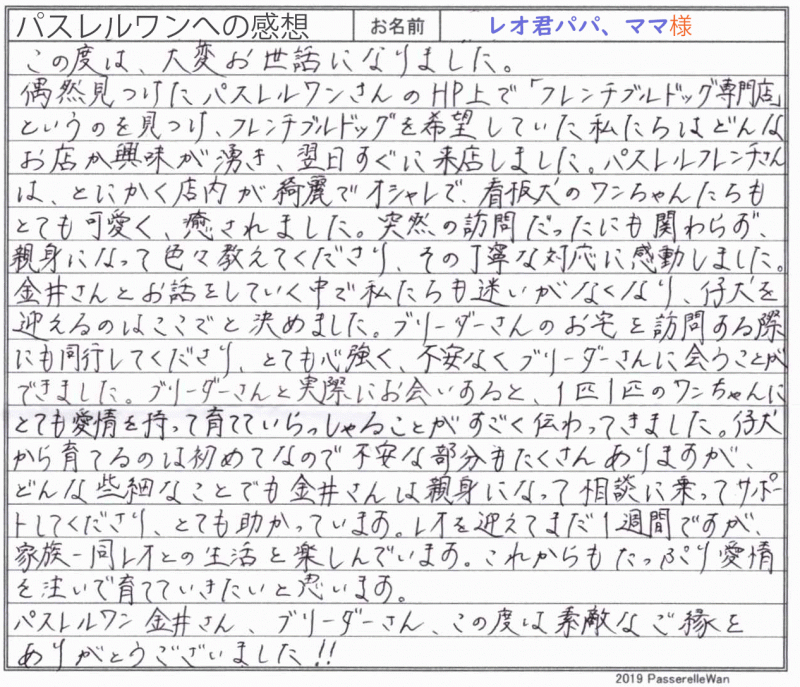 パスレルワンへの感想 お名前 レオ君パパ、ママ様
この度は、大変お世話になりました。
偶然見つけたパスレルワンさんのHP上で「フレンチブルドッグ専門店」
というのを見つけ、フレンチブルドッグを希望していた私たちはどんな
お店か興味が湧き、翌日すぐに来店しました。パスレルフレンチさん
は、とにかく店内が綺麗でオシャレで、看板犬のワンちゃんたちも
とても可愛く、癒されました。突然の訪問だったにも関わらず、
親身になって色々教えてくださり、その丁寧な対応に感動しました。
金井さんとお話をしていく中で私たちも迷いがなくなり、仔犬を
迎えるのはここでと決めました。ブリーダーさんのお宅を訪問する際
にも同行してくださり、とても心強く、不安なくブリーダーさんに会うことが
できました。ブリーダーさんと実際にお会いすると、1匹1匹のワンちゃんに
とても愛情を持って育てていらっしゃることがすごく伝わってきました。仔犬
から育てるのは初めてなので不安な部分もたくさんありますが、
どんな些細なことでも金井さんは親身になって相談に乗ってサポー
トしてくださり、とても助かっています。レオを迎えてまだ1週間ですが、
家族一同レオとの生活を楽しんでいます。これからもたっぷり愛情
を注いで育てていきたいと思います。
パスレルワン 金井さん、ブリーダーさん、この度は素敵なご縁を
ありがとうございました!!
2019 PasserelleWan